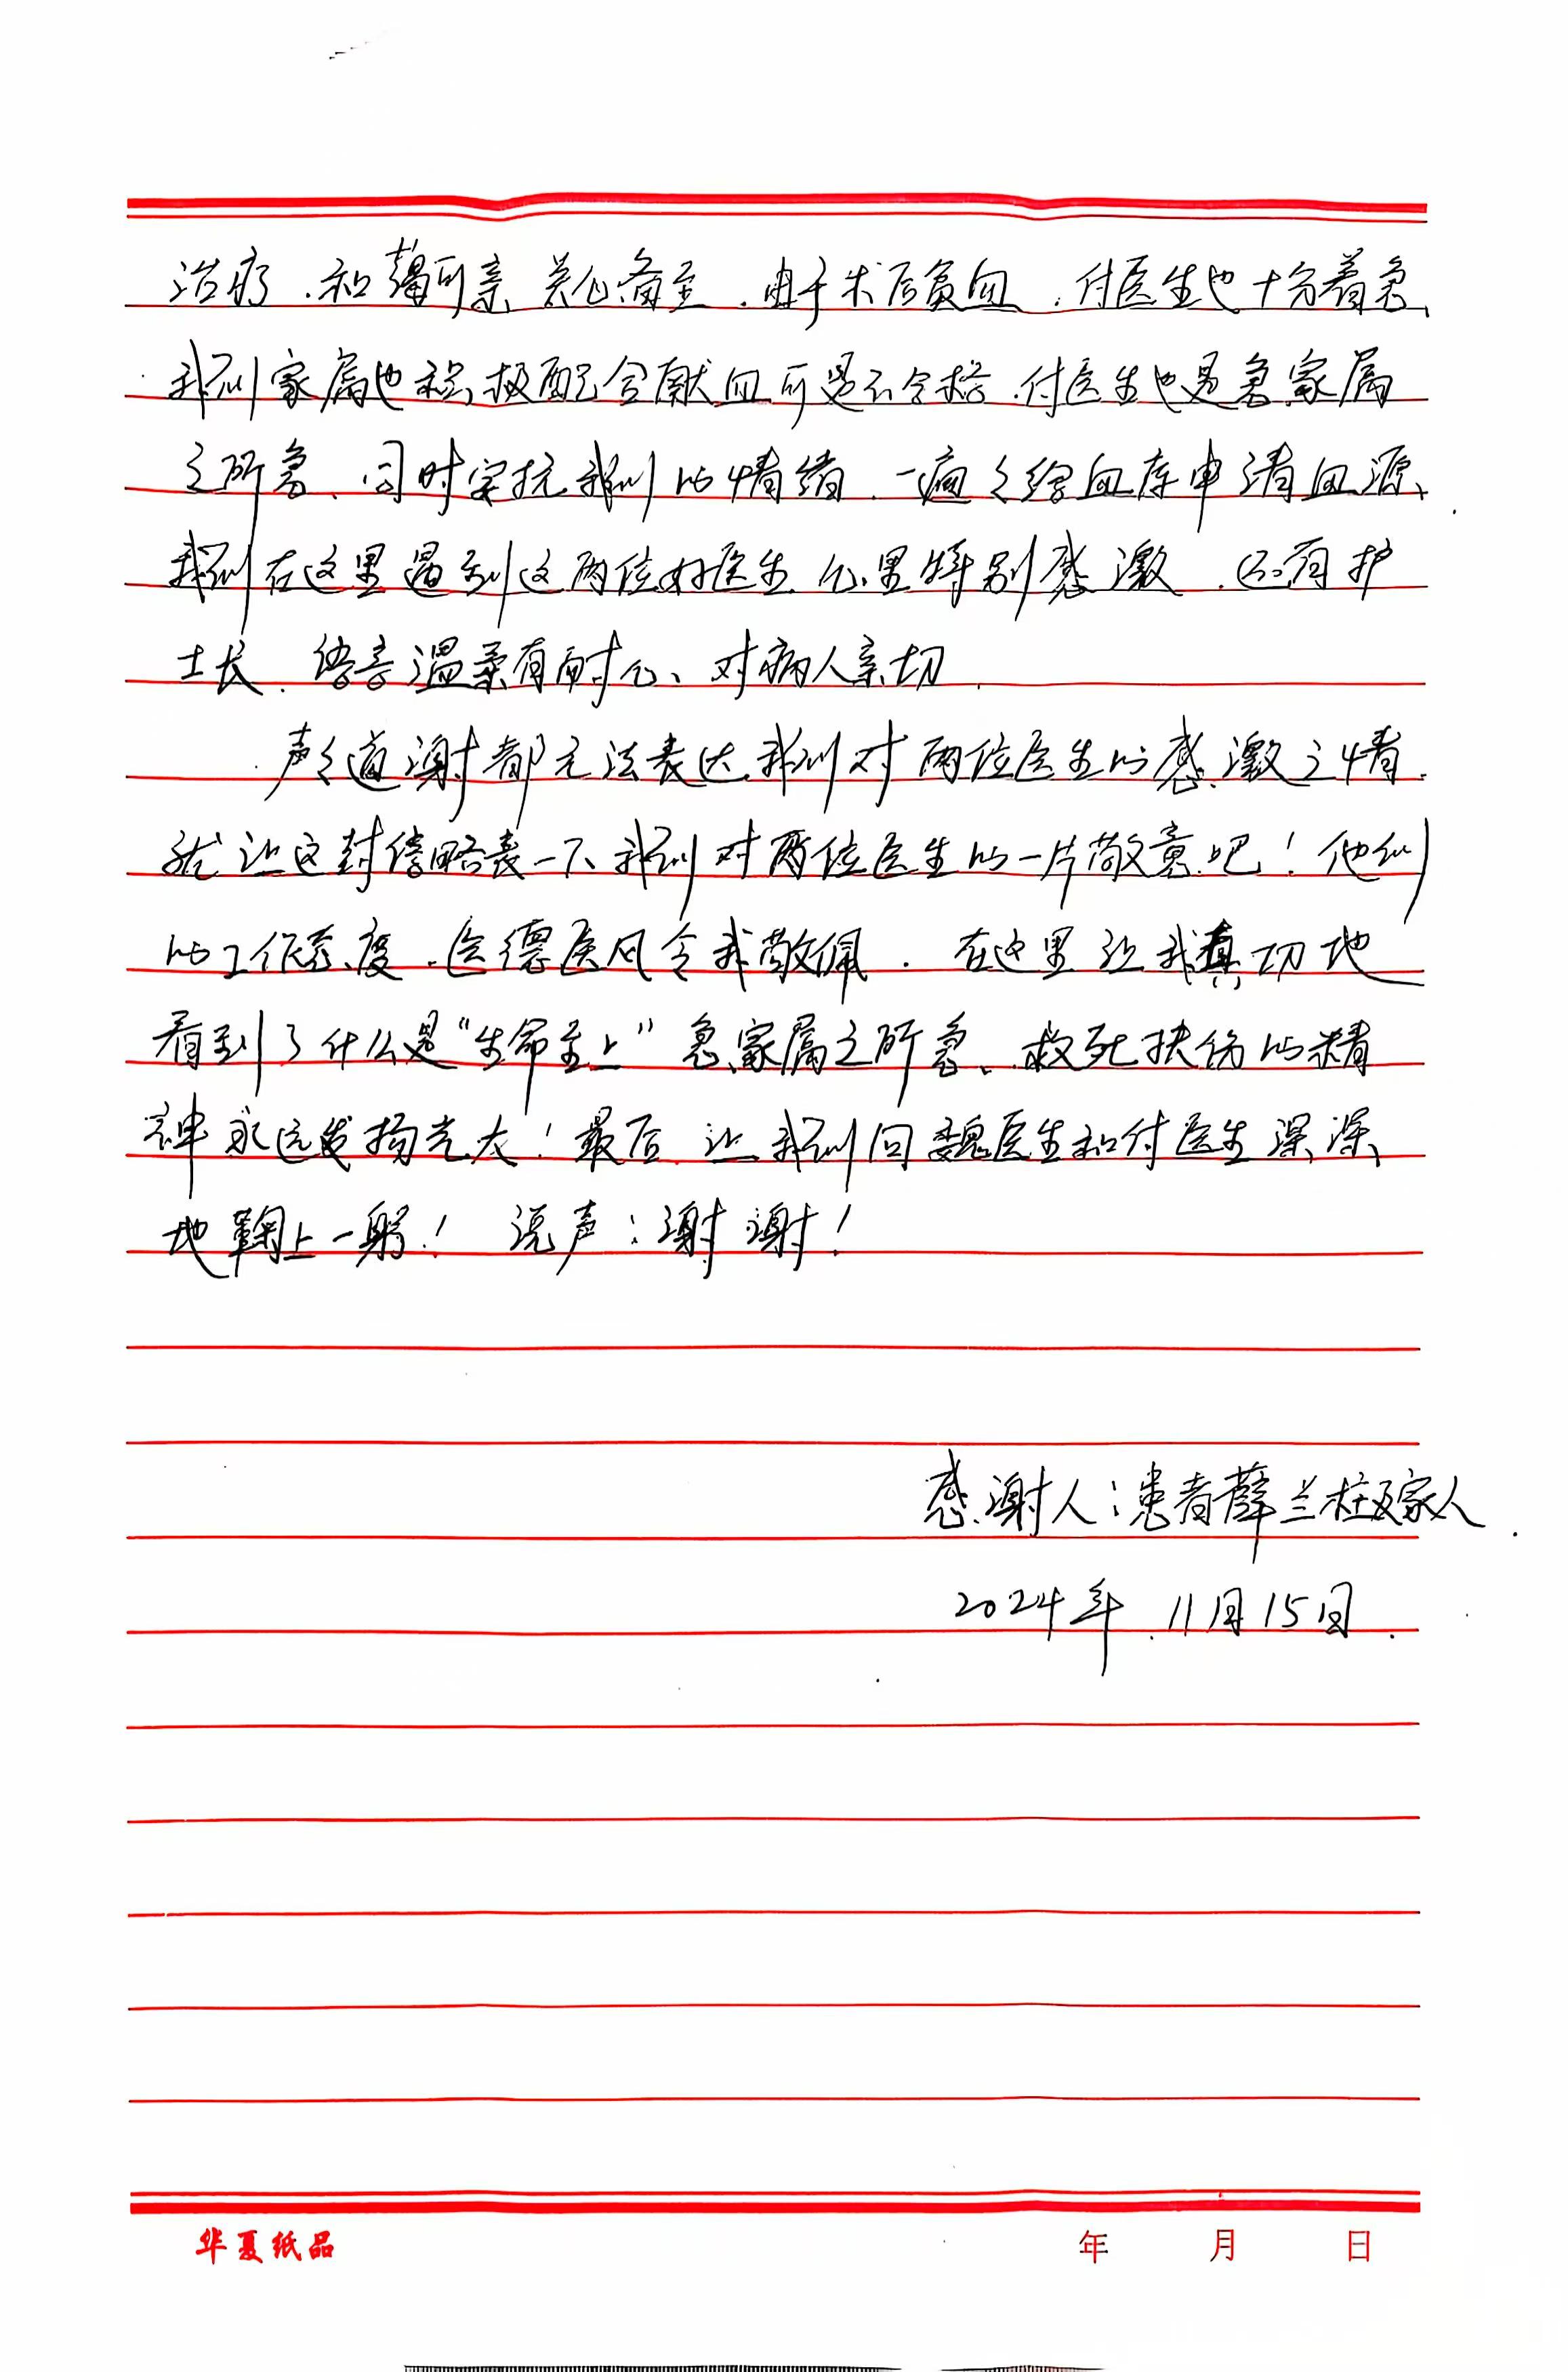 治疗、和蔼可亲、关心备至、由于术后贫血、付医生也十分着急、
我们家属也积极配合献血可是不合格、付医生也是急家属
之所急、同时安抚我们的情绪、一遍々给血库申请血源、
我们在这里遇到这两位好医生心里特别感激、还有护
士长、语音温柔有耐心、对病人亲切、
声々道谢都无法表达我们对两位医生的感激之情、
就让这封信略表一下我们对两位医生的一片敬意吧！他们
的工作态度、医德医风令我敬佩、在这里让我真切地
看到了什么是“生命至上”急家属之所急、救死扶伤的精
神永远发扬光大！最后让我们向魏医生和付医生深深
地鞠上一躬！说声：谢谢！
感谢人：患者薛兰柱及家人
2024年.11月15日.
华夏纸品 年 月 日